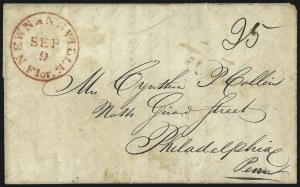 NEWNANSVILLE
Flor.
SEP
9
25
Mrs Cynthia P Collin
North Girard Street
Philadelphia
Penn